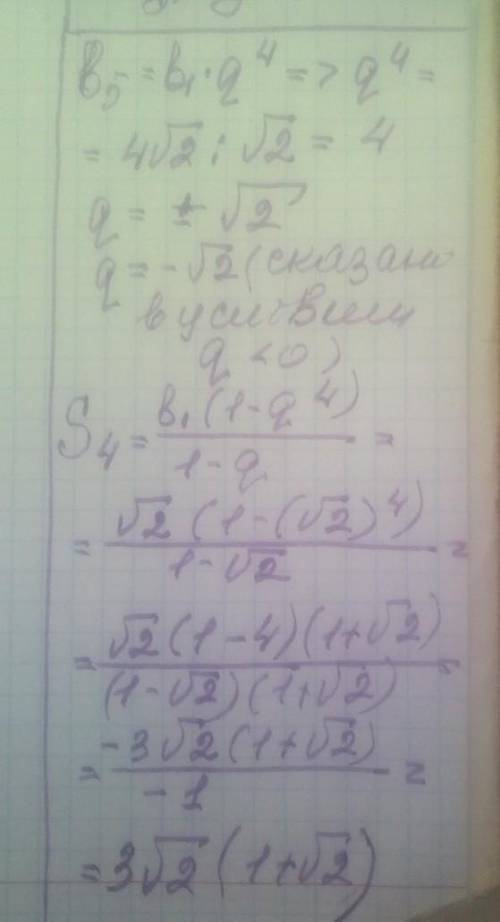 в₅ = в₁·q⁴ => q⁴ =
= 4√2 : √2 = 4
q = ± √2
q = -√2 (сказано
в условии
q < 0)
S₄ = в₁(1-q⁴) / (1-q) =
= √2 (1-(√2)⁴) / (1-√2) =
= √2(1-4)(1+√2) / (1-√2)(1+√2) =
= -3√2(1+√2) / -1 =
= 3√2(1+√2)